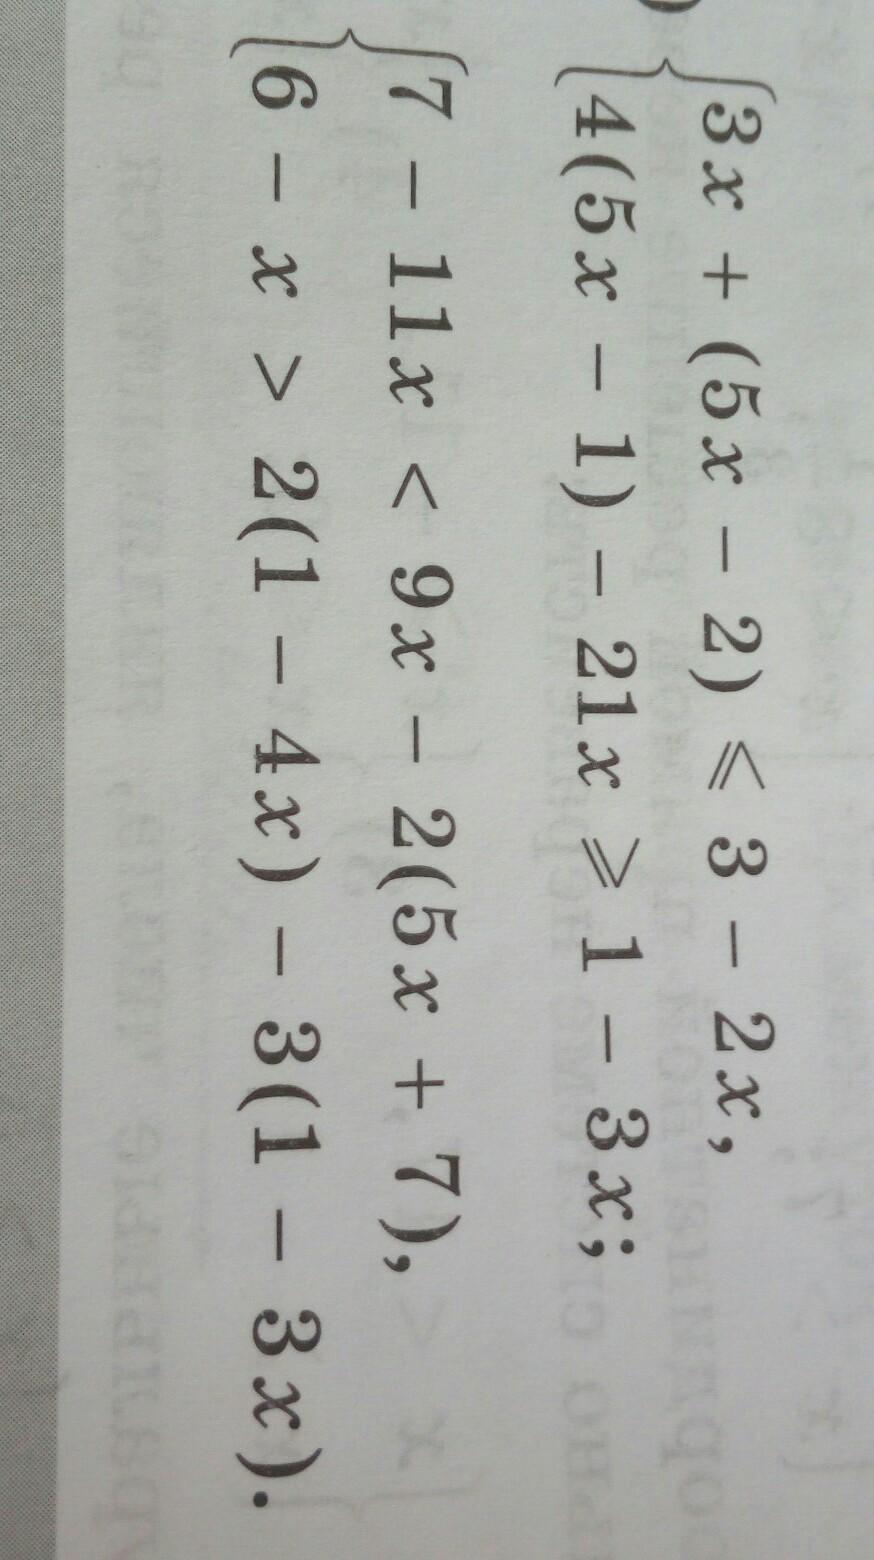 3x + (5x − 2) ⩽ 3 − 2x,
4(5x − 1) − 21x ⩾ 1 − 3x;
7 − 11x < 9x − 2(5x + 7),
6 − x > 2(1 − 4x) − 3(1 − 3x).